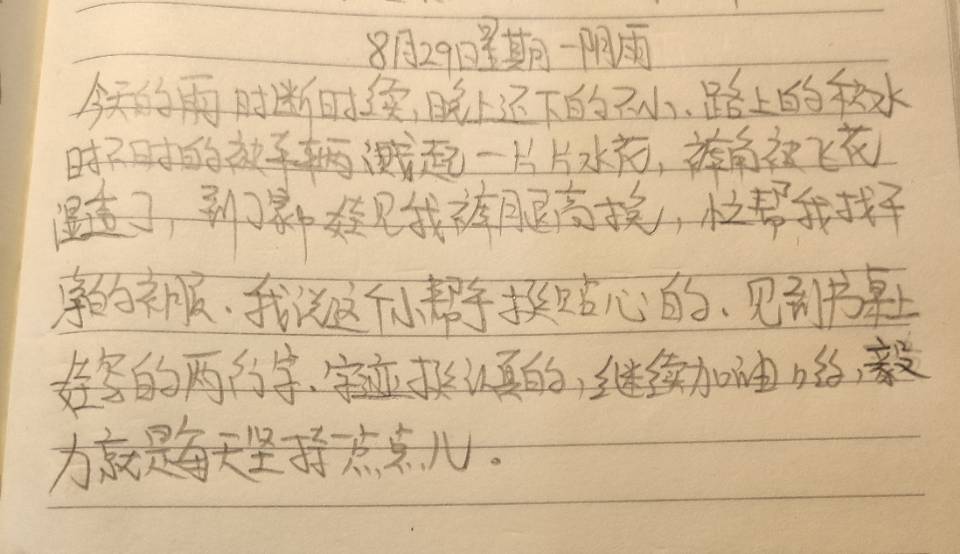 8月29日星期一阴雨
今天的雨时断时续,晚上还下的不小、路上的积水
时不时的被车辆溅起一片片水花,裤角被飞花
湿透了,到了家中娃见我裤腿高挽,忙帮我找干
净的衣服、我说这个小帮手挺贴心的、见到书桌上
娃写的两行字、字迹挺认真的,继续加油哟,毅
力就是每天坚持一点点儿。